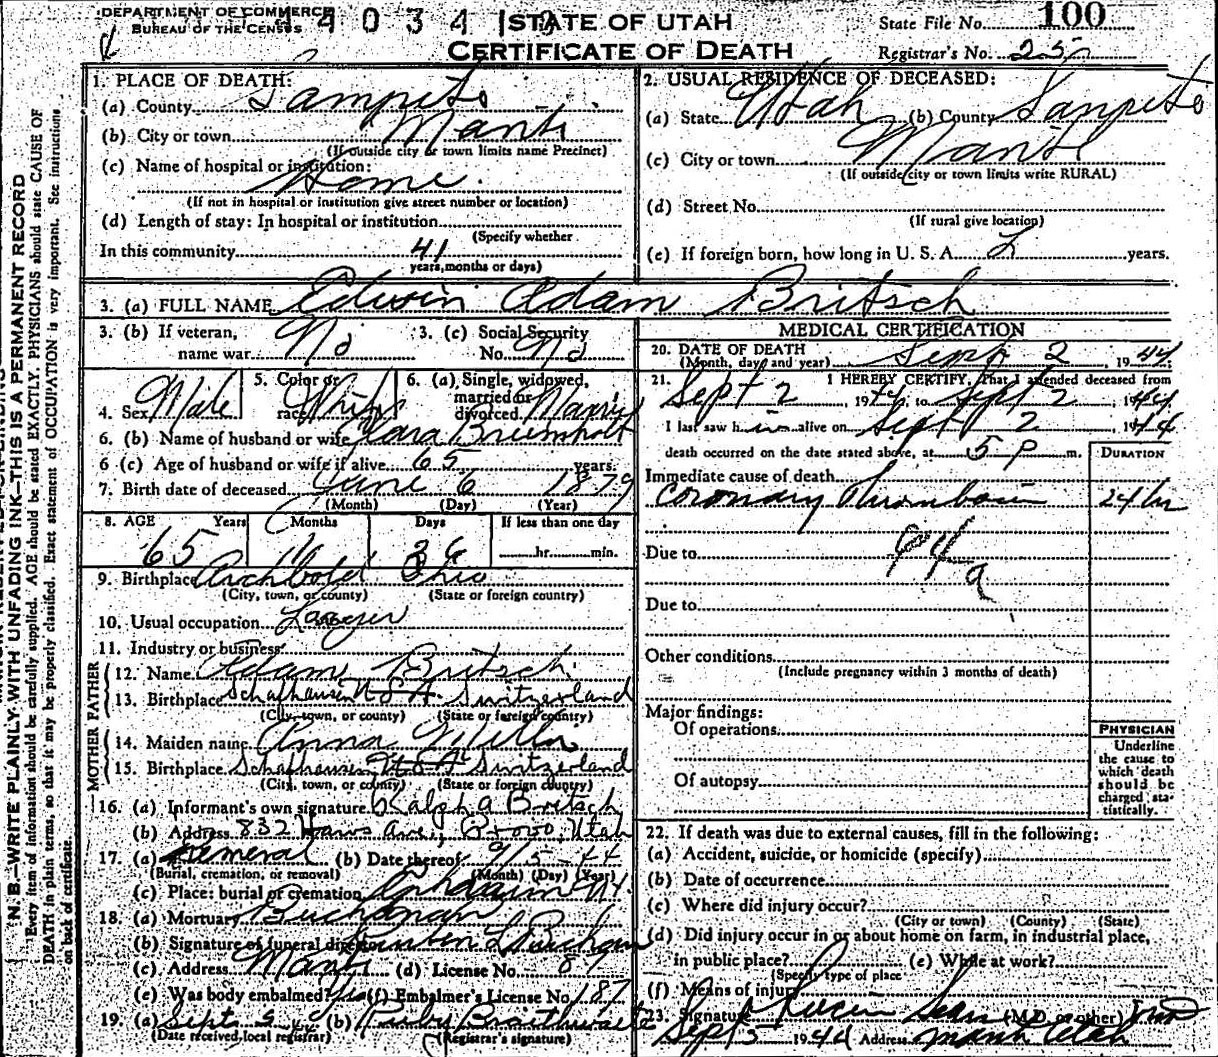 DEPARTMENT OF COMMERCE
BUREAU OF THE CENSUS
STATE OF UTAH
CERTIFICATE OF DEATH
State File No. 100
Registrar's No. 25
N. B.—WRITE PLAINLY WITH UNFADING INK—THIS IS A PERMANENT RECORD
Every item of information should be carefully supplied. AGE should be stated EXACTLY. PHYSICIANS should state CAUSE OF
DEATH in plain terms, so that it may be properly classified. Exact statement of OCCUPATION is very important. See instructions
on back of certificate.
1. PLACE OF DEATH:
(a) County Sanpete
(b) City or town Manti
(If outside city or town limits name Precinct)
(c) Name of hospital or institution:
Home
(If not in hospital or institution give street number or location)
(d) Length of stay: In hospital or institution
(Specify whether
In this community 41
years, months or days)
2. USUAL RESIDENCE OF DECEASED:
(a) State Utah (b) County Sanpete
(c) City or town Manti
(If outside city or town limits write RURAL)
(d) Street No.
(If rural give location)
(e) If foreign born, how long in U. S. A. years.
3. (a) FULL NAME Edwin Adam Britsch
3. (b) If veteran, name war No
3. (c) Social Security No. No
4. Sex Male
5. Color or race White
6. (a) Single, widowed, married or divorced Married
6. (b) Name of husband or wife Clara
6 (c) Age of husband or wife if alive 65 years.
7. Birth date of deceased June 6 1879
(Month) (Day) (Year)
8. AGE Years Months Days If less than one day
65 26 hr. min.
9. Birthplace Archbold Ohio
(City, town, or county) (State or foreign country)
10. Usual occupation
11. Industry or business
FATHER
12. Name Adam Britsch
13. Birthplace Schafhausen Switzerland
(City, town, or county) (State or foreign country)
MOTHER
14. Maiden name Anna
15. Birthplace Schafhausen Switzerland
(City, town, or county) (State or foreign country)
16. (a) Informant's own signature Ralph A Britsch
(b) Address 832 Ave., Provo, Utah
17. (a) Removal (b) Date thereof 9/5-44
(Burial, cremation, or removal) (Month) (Day) (Year)
(c) Place: burial or cremation Ephraim
18. (a) Mortuary Buchanan
(b) Signature of funeral director
(c) Address Manti (d) License No. 89
(e) Was body embalmed? Yes (f) Embalmer's License No. 187
19. (a) Sept 44 (b) Ruby Braithwaite
(Date received local registrar) (Registrar's signature)
MEDICAL CERTIFICATION
20. DATE OF DEATH
(Month, day and year) Sept 2, 1944
21. I HEREBY CERTIFY, That I attended deceased from
Sept 2 1944, to Sept 2, 1944
I last saw him alive on Sept 2 1944
death occurred on the date stated above, at 5 P m.
DURATION
Immediate cause of death
Coronary Thrombosis 24 hr
Due to 94a
Due to
Other conditions
(Include pregnancy within 3 months of death)
Major findings:
Of operations
Of autopsy
PHYSICIAN
Underline
the cause to
which death
should be
charged sta-
tistically.
22. If death was due to external causes, fill in the following:
(a) Accident, suicide, or homicide (specify)
(b) Date of occurrence
(c) Where did injury occur?
(City or town) (County) (State)
(d) Did injury occur in or about home on farm, in industrial place,
in public place? (e) While at work?
(Specify type of place
(f) Means of injury
23. Signature Lucien Sears (M.D. or other) MD
Sept 3 1944 Address Manti Utah